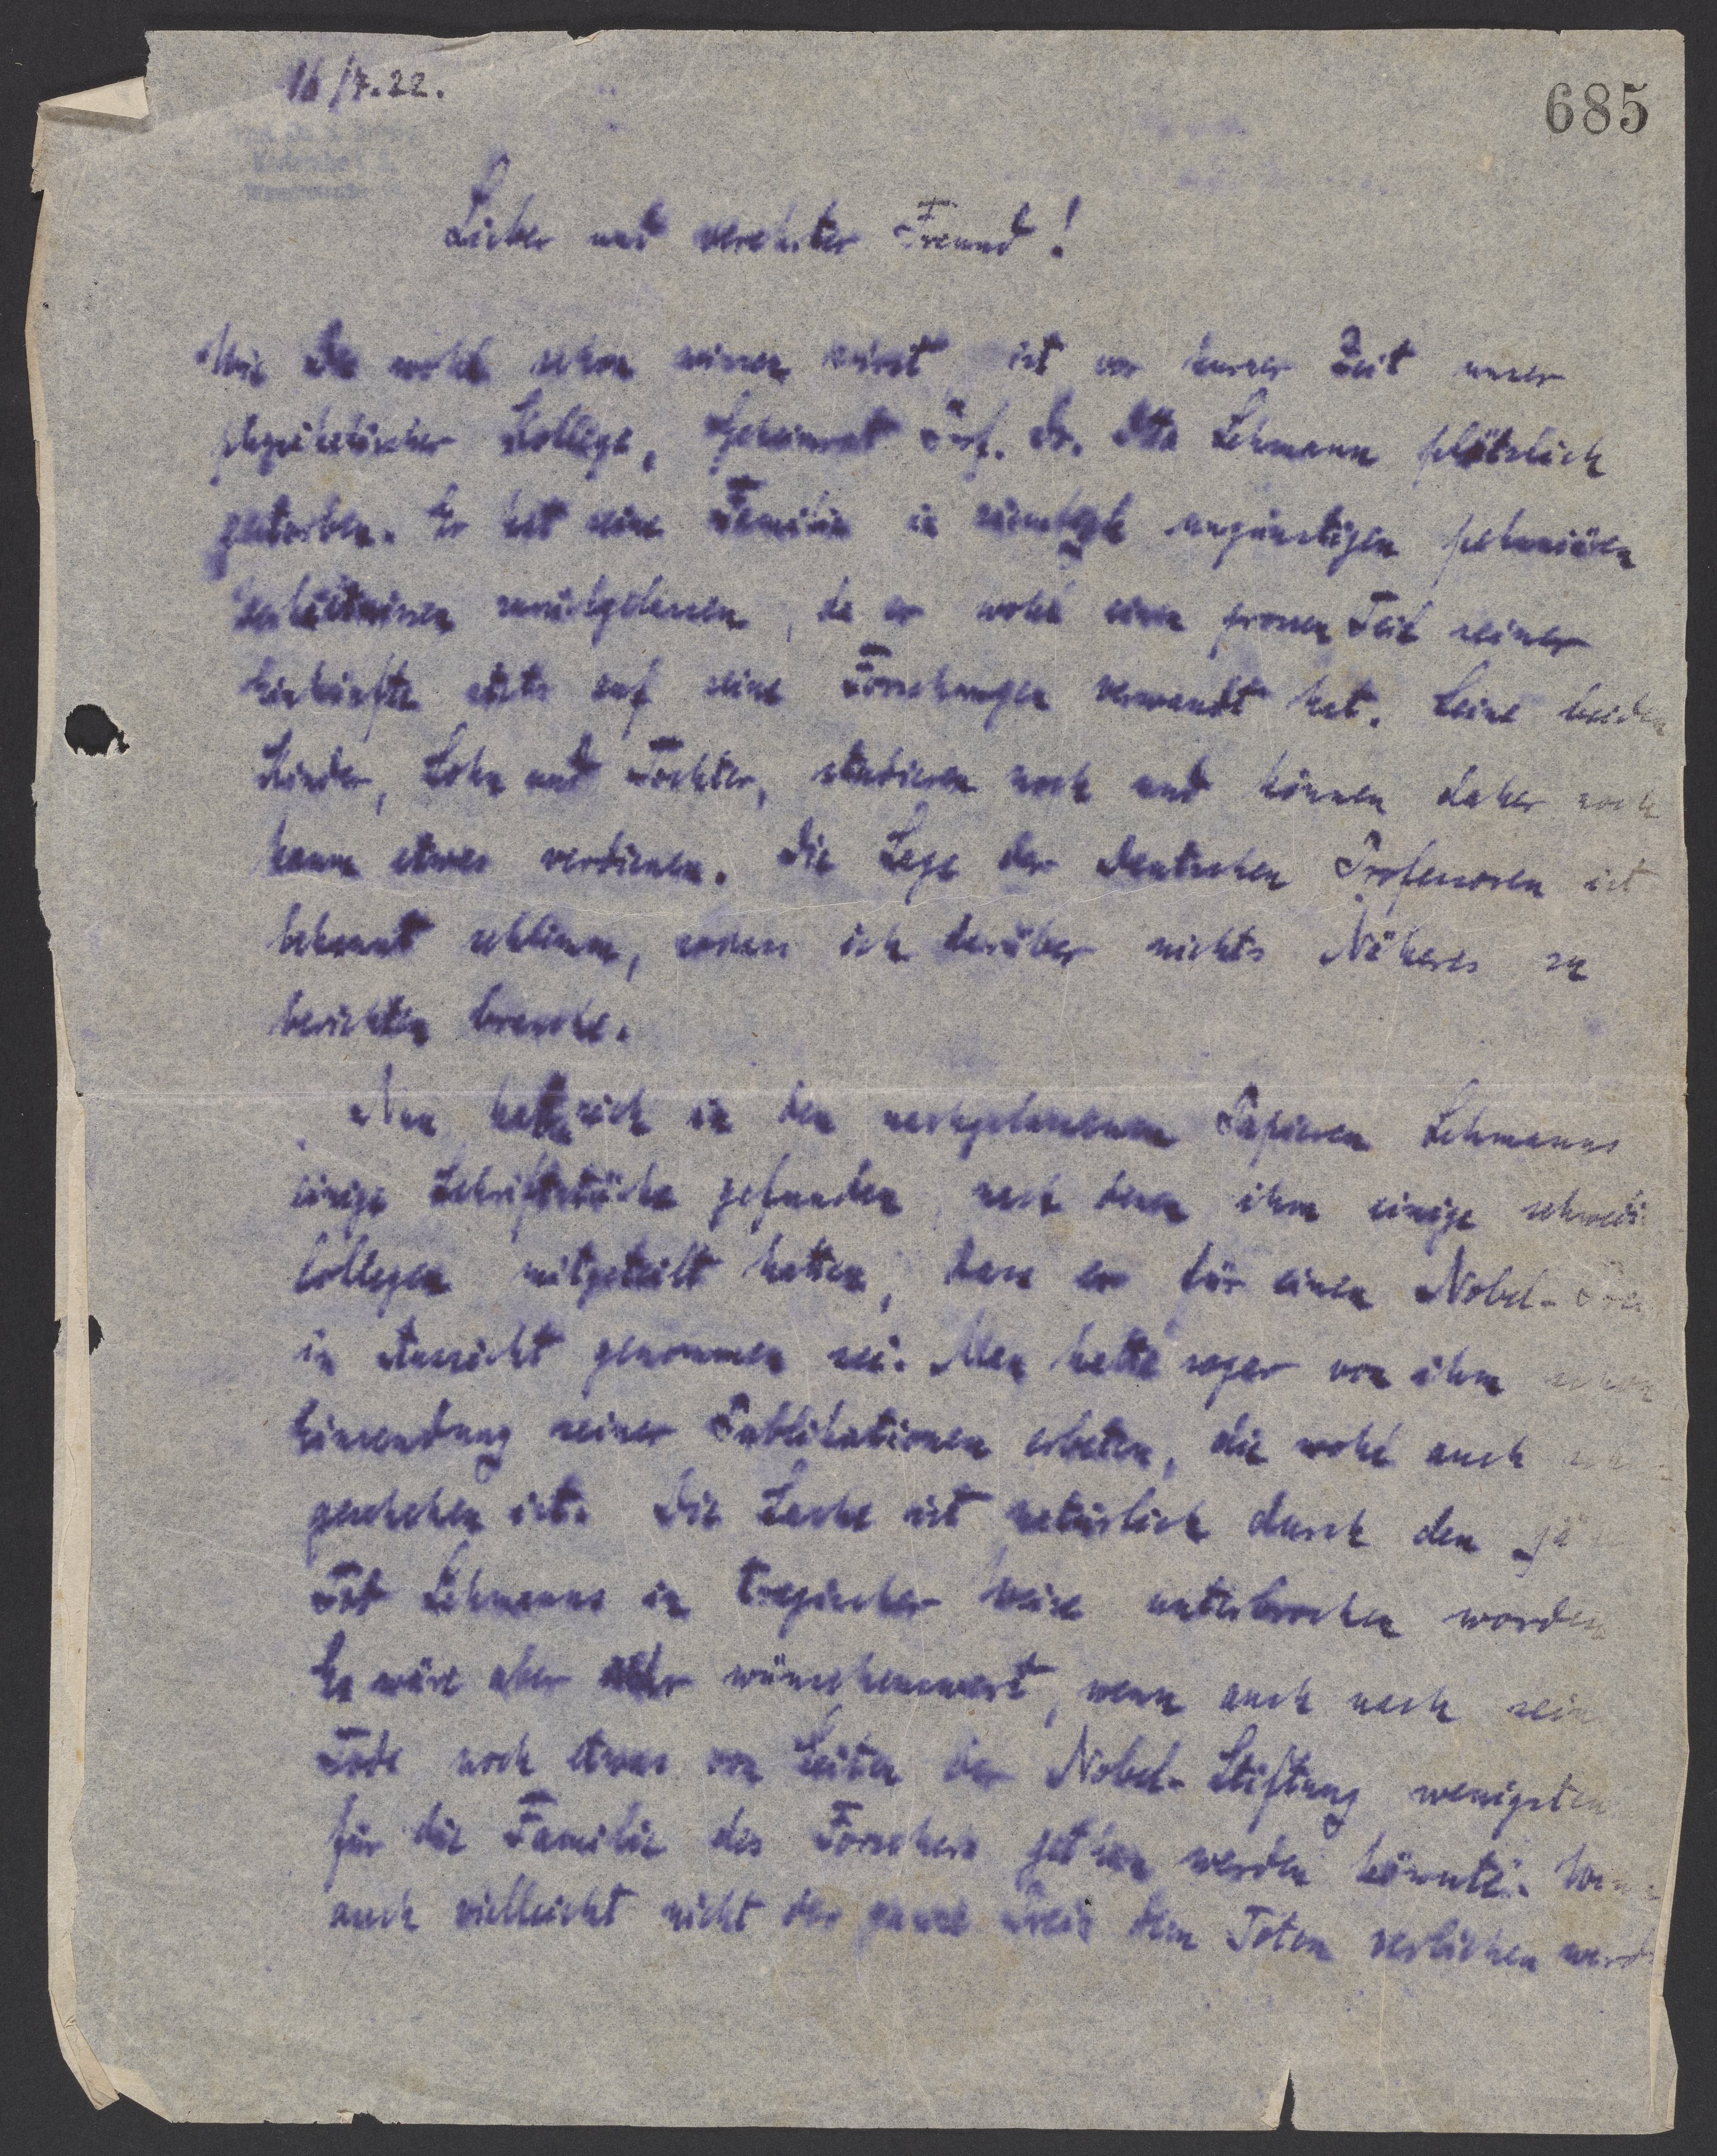 16/7.22.
685
Lieber und verehrter Freund!
Wie Du wohl schon wissen wirst ist vor kurzer Zeit unser
physikalischer Kollege, Geheimrat Prof. Dr. Otto Lehmann plötzlich
gestorben. Er hat seine Familie in ungünstigen pekuniären
Verhältnissen zurückgelassen, da er wohl einen grossen Teil seiner
Einkünfte stets auf seine Forschungen verwandt hat. Seine beiden
Kinder, Sohn und Tochter, studieren noch und können daher noch
kaum etwas verdienen. Die Lage der Deutschen Professoren ist
bekannt schlimm, sodass ich darüber nichts Näheres zu
berichten brauche.
Nun hat sich in den nachgelassenen Papieren Lehmanns
einige Schriftstücke gefunden, nach denen ihm einige schwedi
Collegen mitgeteilt hatten, dass er für einen Nobel-Prei
in Aussicht genommen sei. Man hatte sogar von ihm schon
Einsendung seiner Publikationen erbeten, die wohl auch
geschehen ist. Die Sache ist natürlich durch den jä
Tot Lehmanns in tragischer Weise unterbrochen worden
Es wäre aber sehr wünschenswert, wenn auch nach sein
Tode noch etwas von Seiten der Nobel-Stiftung wenigsten
für die Familie des Forschers gethan werden könnte. Wenn
auch vielleicht nicht der ganze Preis dem Toten verliehen werd